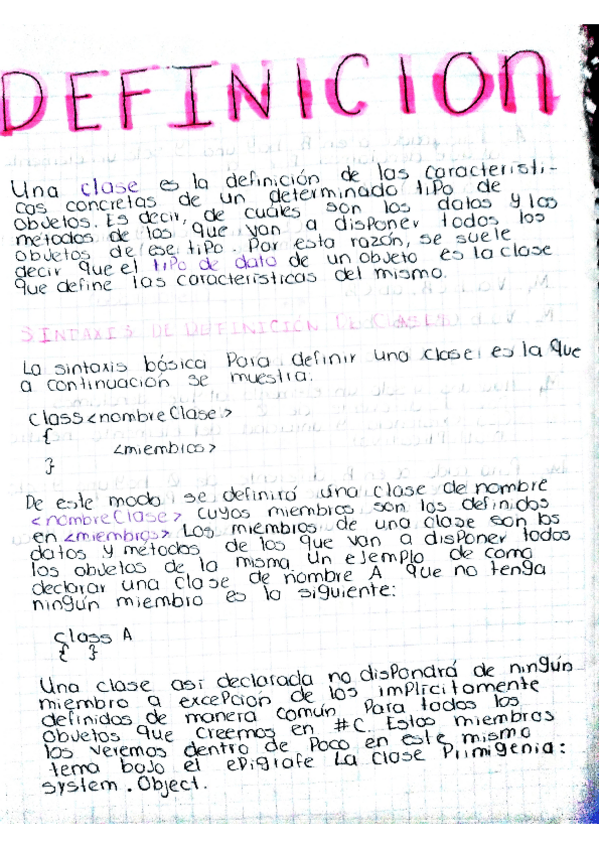 DEFINICIOn
Una clase es la definición de las caracteristi-
cas concretas de un determinado tipo de
objetos. Es decir, de cuáles son los datos y los
métodos de los que van a disponer todos los
objetos de ese tipo. Por esta razón, se suele
decir que el tipo de dato de un objeto es la clase
que define las caracteristicas del mismo.
SINTAXIS DE DEFINICIÓN DE CLASES
La sintaxis básica Para definir una clase es la que
a continuación se muestra:
class<nombreClase>
{
<miembros>
}
De este modo se definirá una clase de nombre
<nombreClase> cuyos miembros son los definidos
en <miembros> Los miembros de una clase son los
datos y métodos de los que van a disponer todos
los objetos de la misma. Un ejemplo de como
declarar una clase de nombre A que no tenga
ningún miembro es la siguiente:
class A
{ }
Una clase asi declarada no dispondrá de ningún
miembro a excepción de los implicitamente
definidos de manera común Para todos los
objetos que creemos en #C. Estos miembros
los veremos dentro de Poco en este mismo
tema bajo el epigrafe La clase Primigenia:
system.Object.